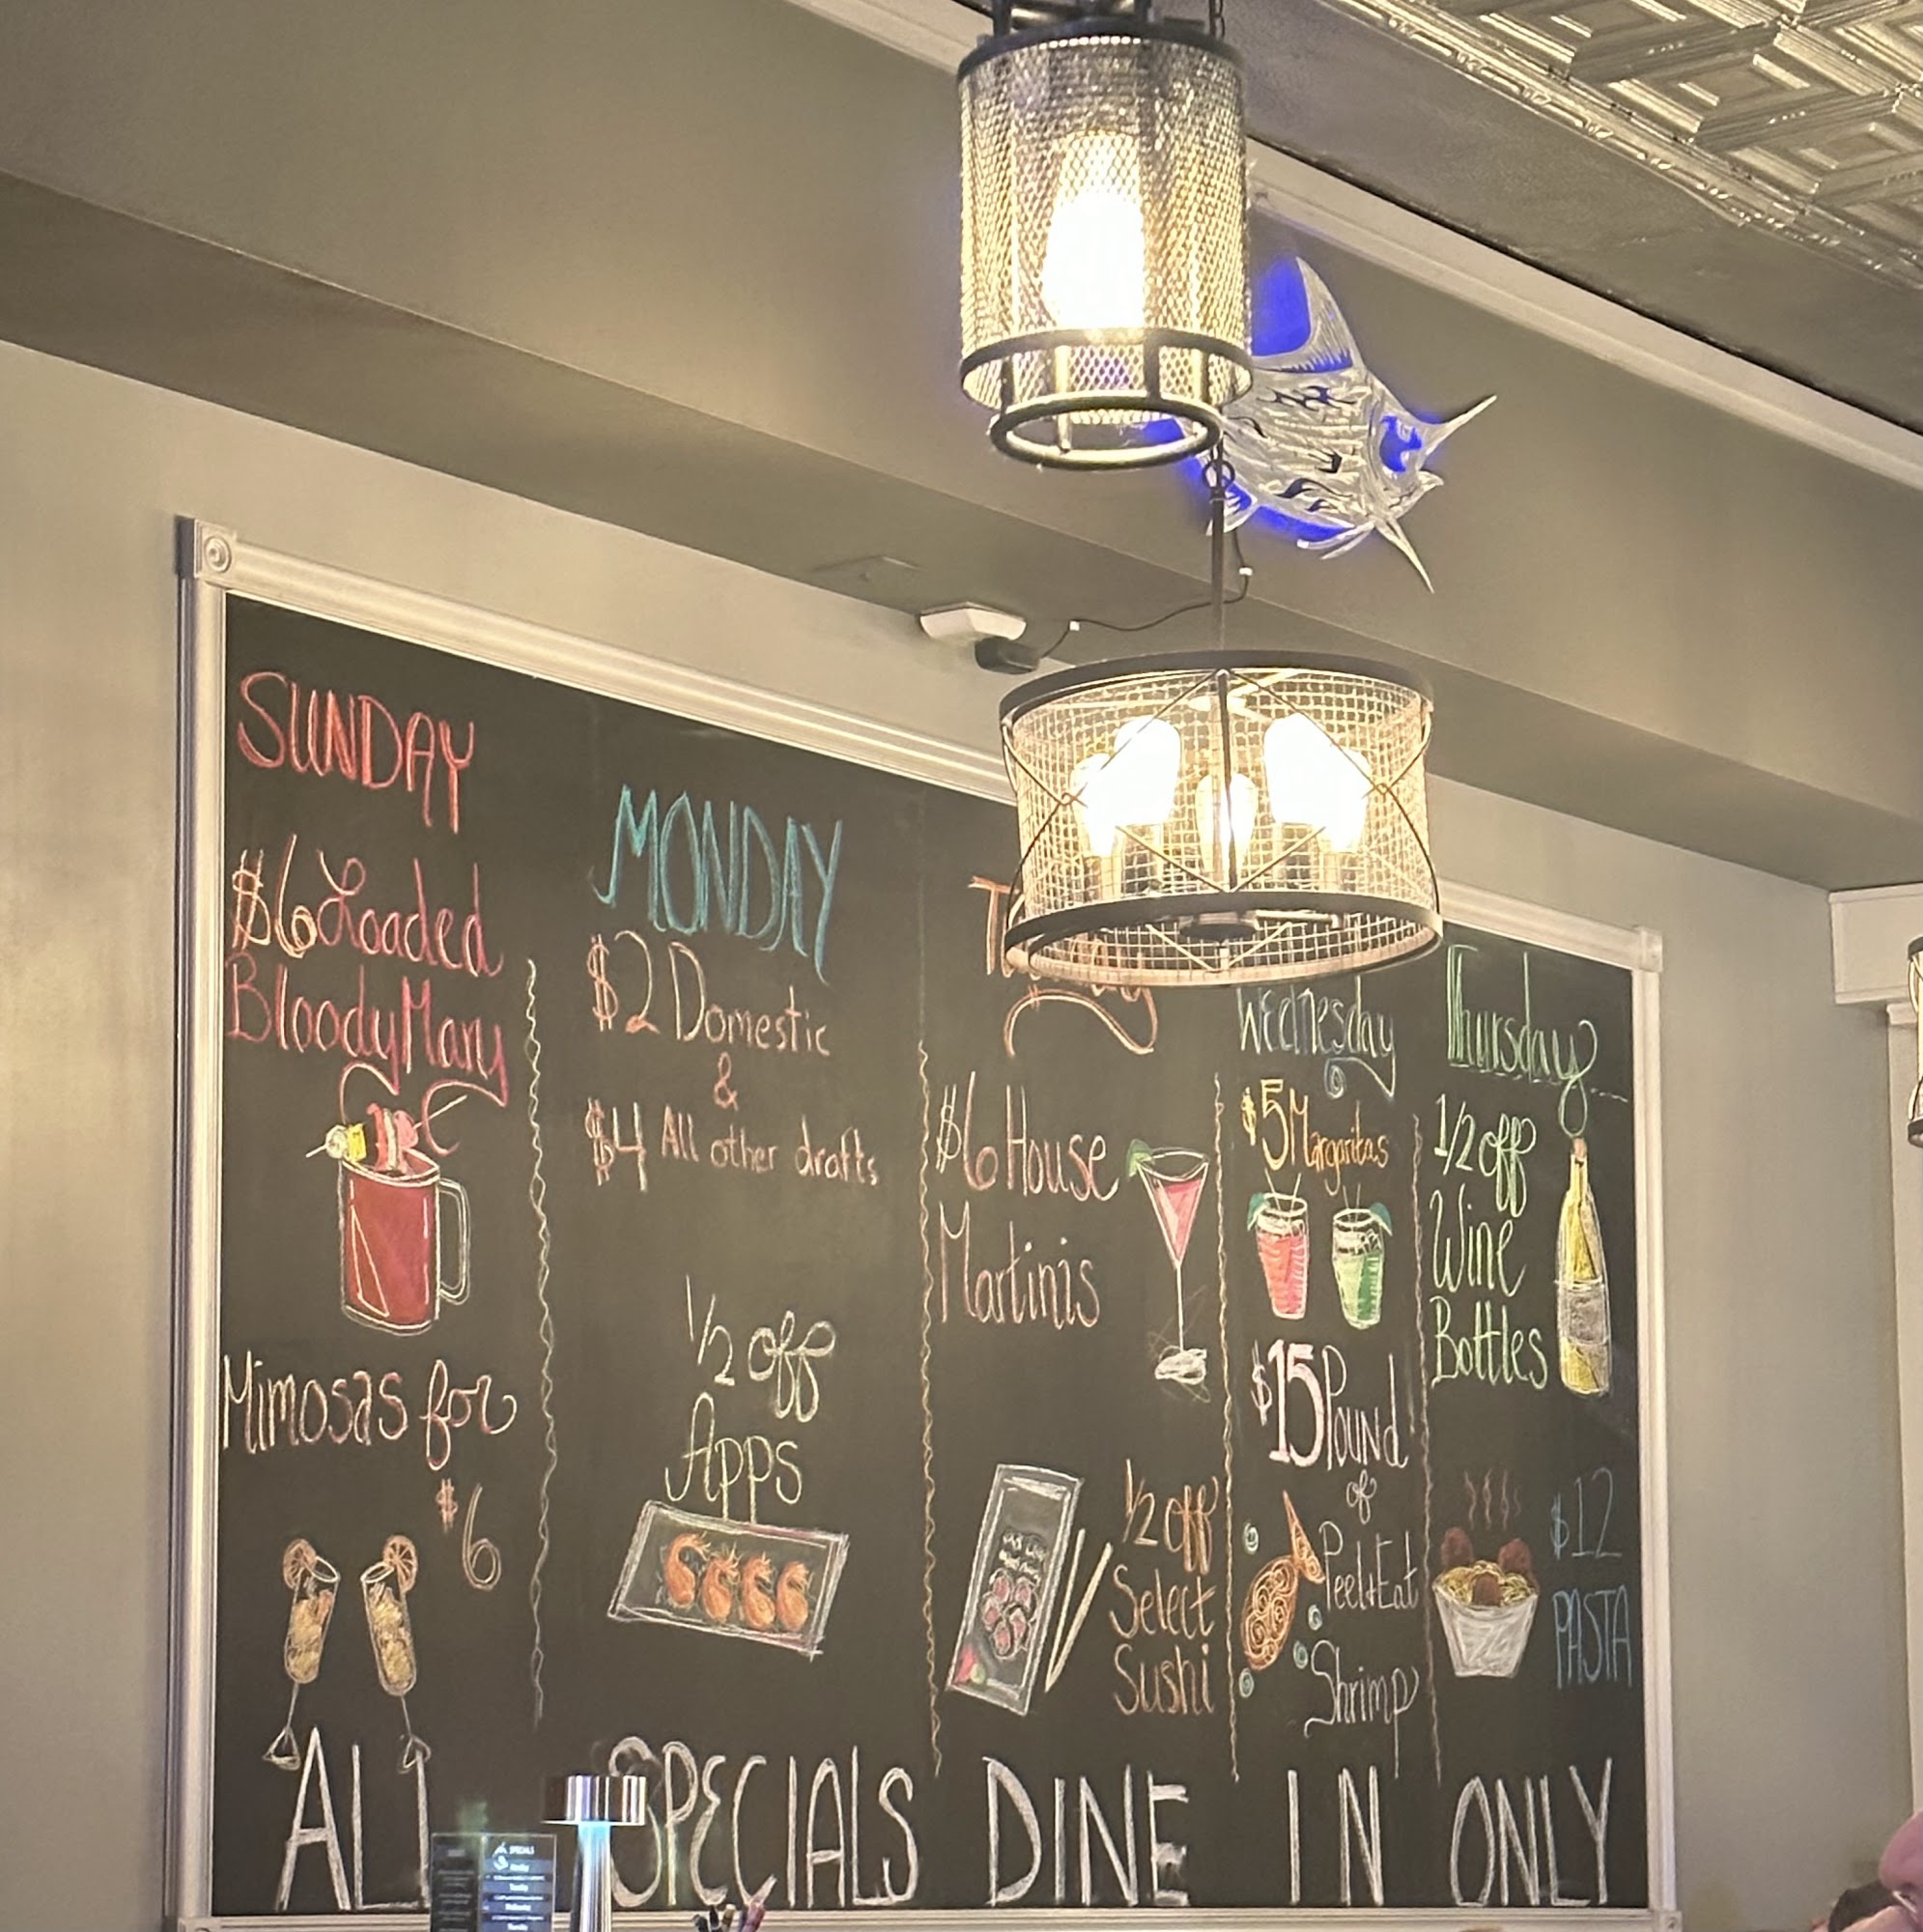 SUNDAY
$6 Loaded
Bloody Mary
Mimosas for
$6
MONDAY
$2 Domestic
&
$4 All other drafts
1/2 off
Apps
$6 House
Martinis
1/2 off
Select
Sushi
Wednesday
$5 Margaritas
$15 Pound
of
Peel & Eat
Shrimp
Thursday
1/2 off
Wine
Bottles
$12
PASTA
ALL SPECIALS DINE IN ONLY
SPECIALS